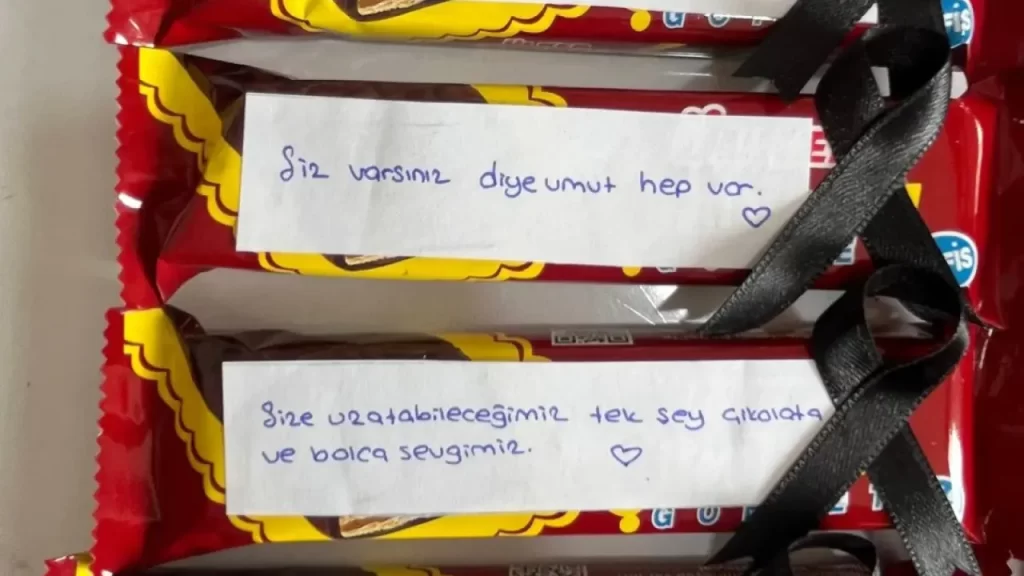 FİŞ
Siz varsınız diye umut hep var.
FİŞ
Size uzatabileceğimiz tek şey çikolata
ve bolca sevgimiz.